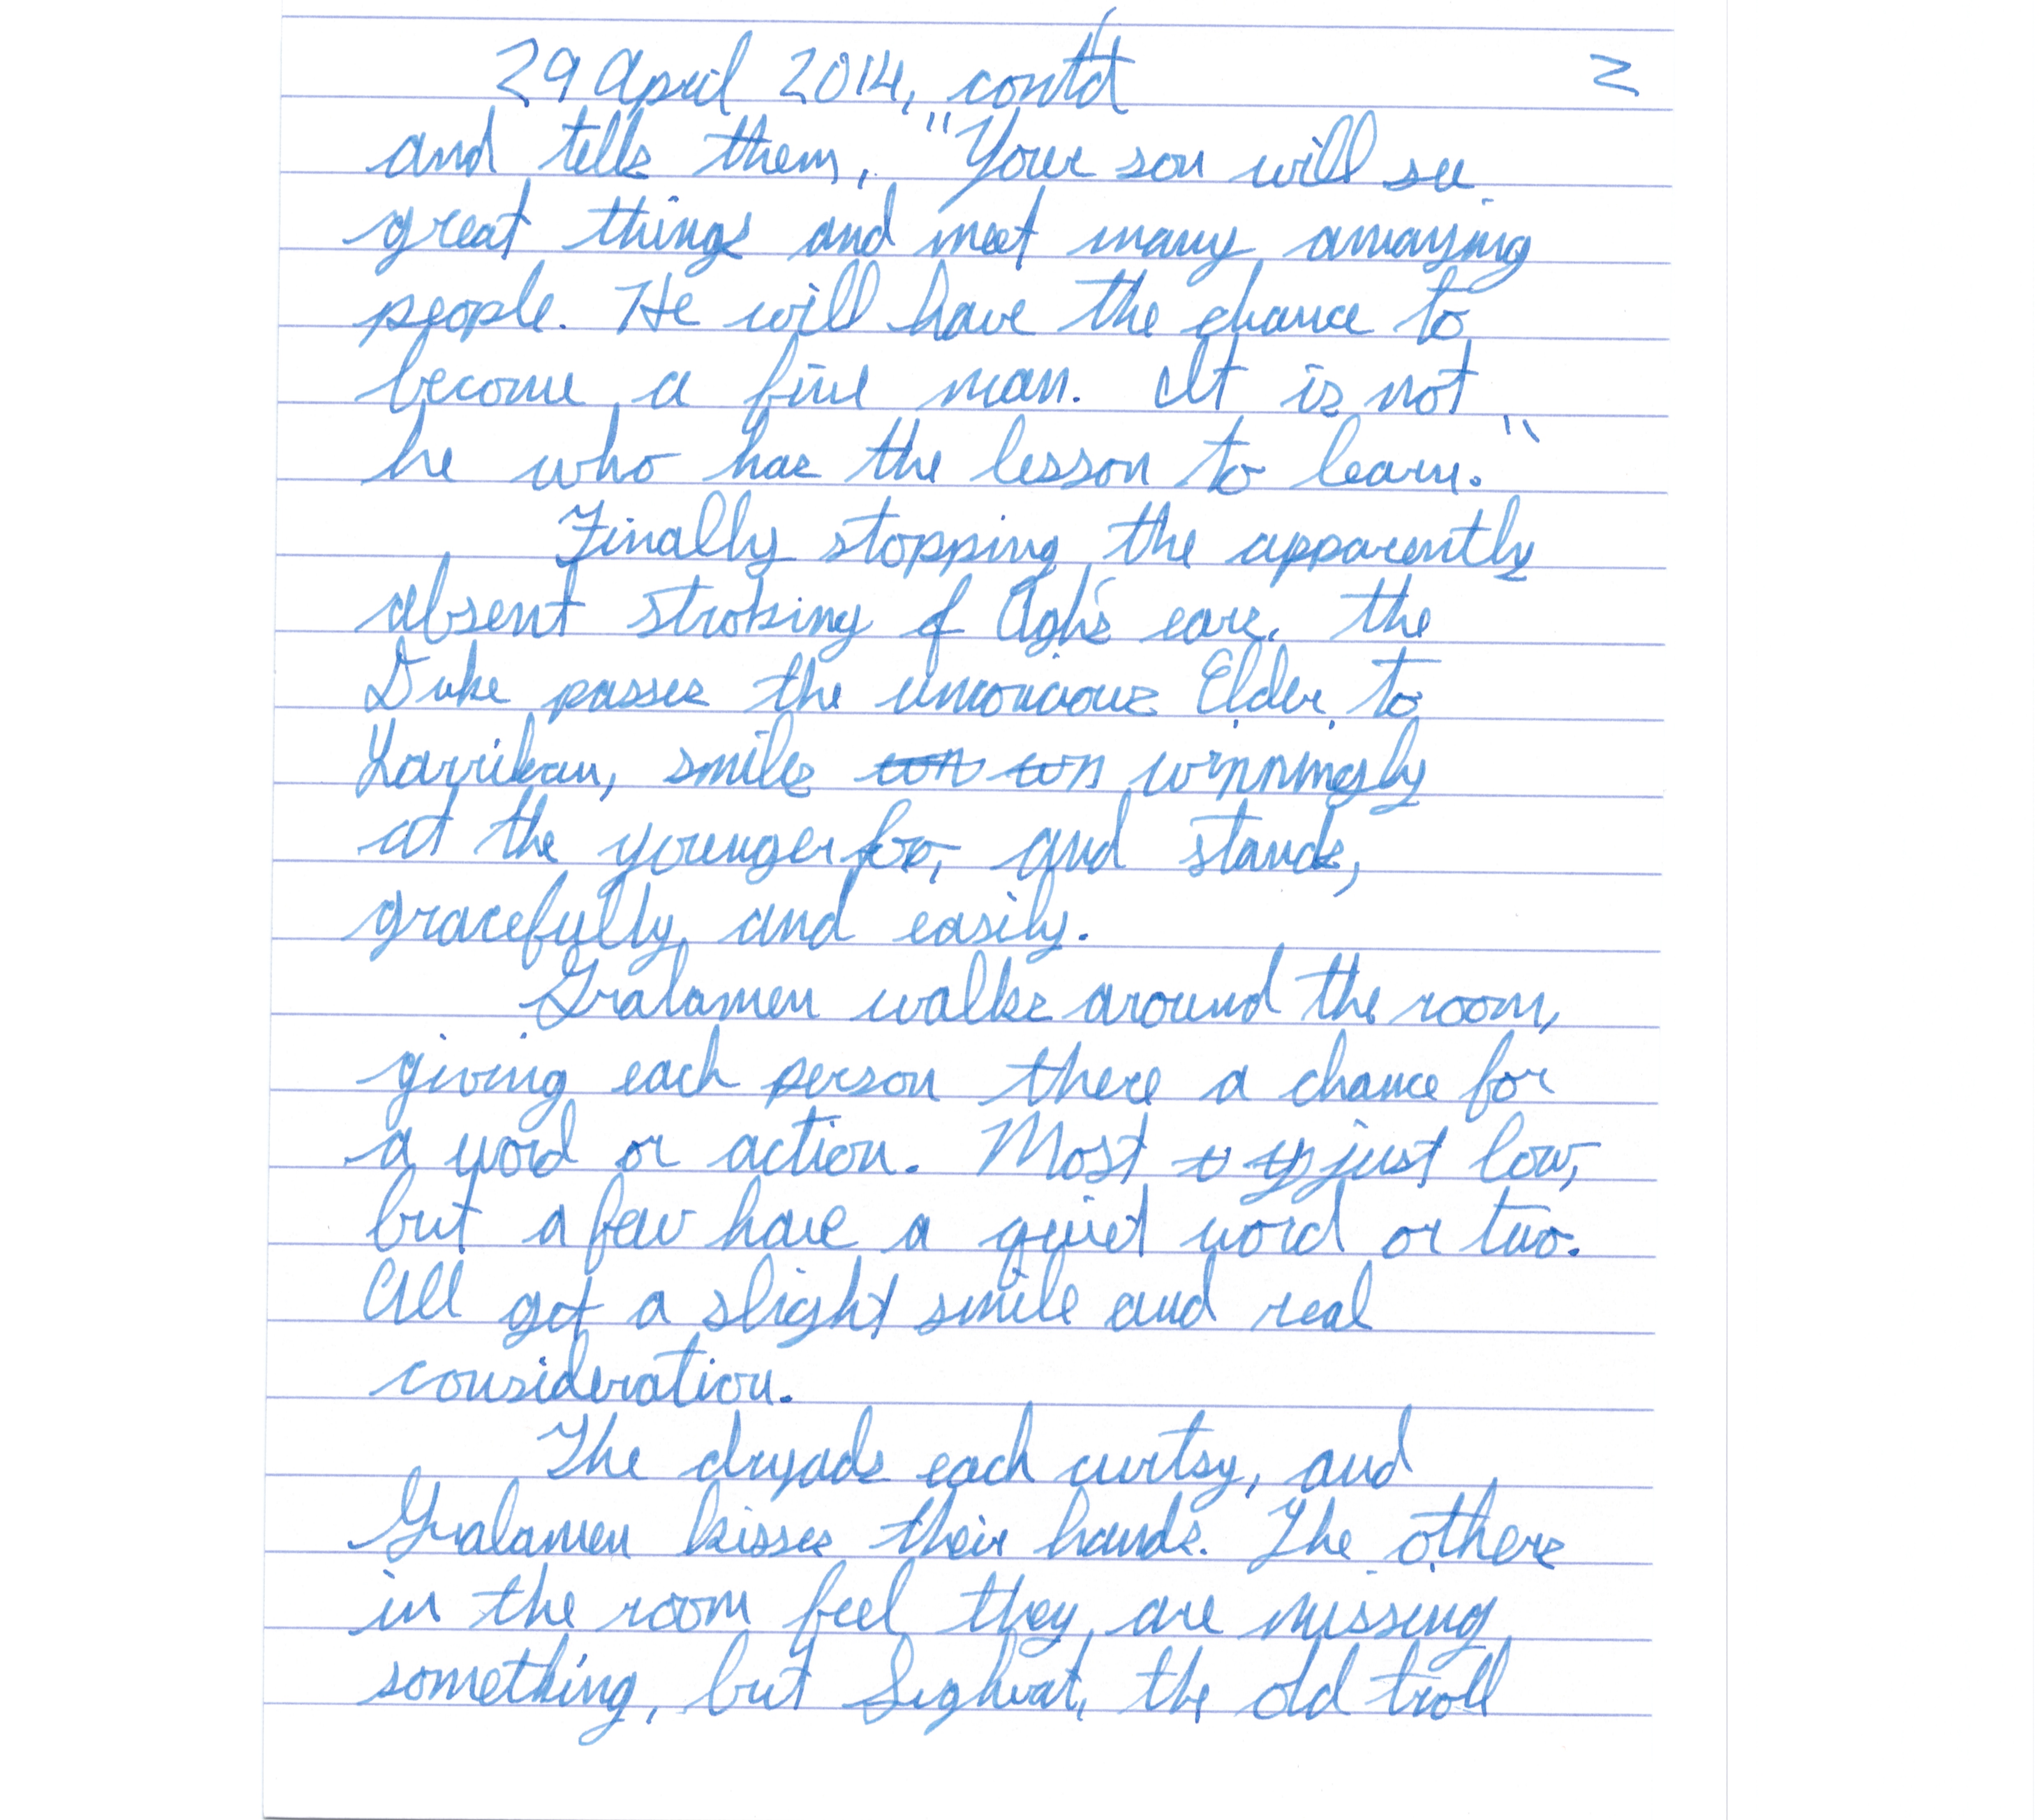 29 April 2014, cont'd 2
and tells them, "Your son will see
great things and meet many amazing
people. He will have the chance to
become a fine man. It is not
he who has the lesson to learn."
Finally stopping the apparently
absent stroking of Agh's ears, the
Duke passes the unconcious Elder to
Larrikan, smiles winningly
at the younger foo, and stands,
gracefully and easily.
Gralamen walks around the room,
giving each person there a chance for
a word or action. Most just bow,
but a few have a quiet word or two.
All get a slight smile and real
consideration.
The dryads each curtsy, and
Gralamen kisses their hands. The others
in the room feel they are missing
something, but Sighvat, the old troll